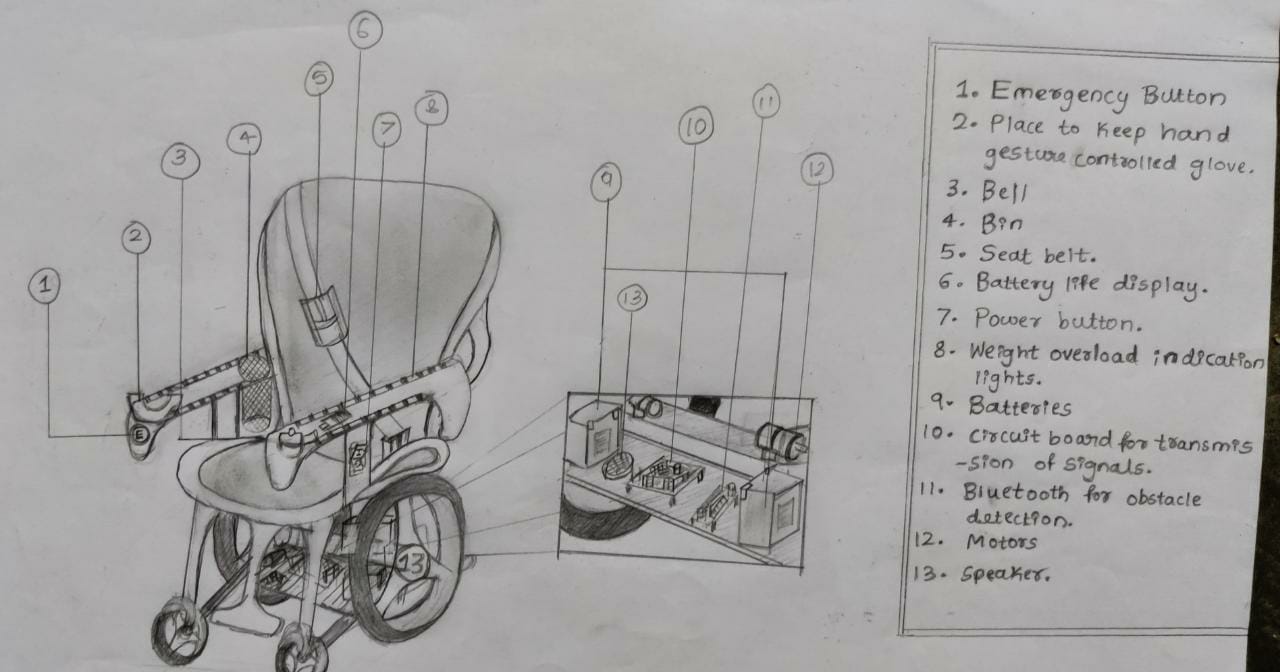 6
5
8
7
4
3
2
1
11
10
12
9
13
E
13
1. Emergency Button
2. Place to keep hand
gesture controlled glove.
3. Bell
4. Bin
5. Seat belt.
6. Battery life display.
7. Power button.
8. Weight overload indication
lights.
9. Batteries
10. Circuit board for transmis
-sion of signals.
11. Bluetooth for obstacle
detection.
12. Motors
13. Speaker.